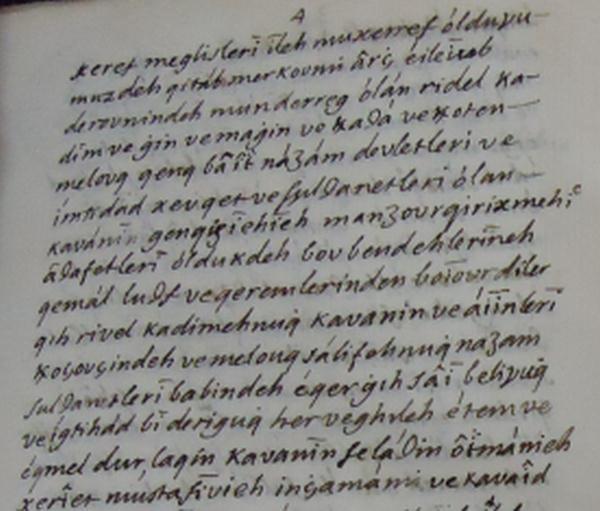 4
xeref meglisleri ileh muxerref ólduyu-
muzdeh qitáb merkoumi ârż éileïueb
derounindeh munderreg ólán ridel ka-
dim ve ġin ve maġin ve kadá ve xoten-
melouq genq bâît názám devletleri ve
ímtidad xevqet ve sulданetleri ólan
kavánin gengiziehieh manzourgirixmehi
âdafetleri óldukdeh bou bendehlerineh
qemál ludf ve qeremlerinden boiourdiler
qih rivel kadimehnuq kavanin ve áiinleri
xożoużindeh ve melouq sálifehnuq nazam
suldanetleri babindeh éqerġih sâi beliyuq
ve iġtihád bi deriguq her veghileh étem ve
éqmel dur, laqin kavanin seládin ôtmánieh
xerîet mustafivieh inżamámi ve kavaîd